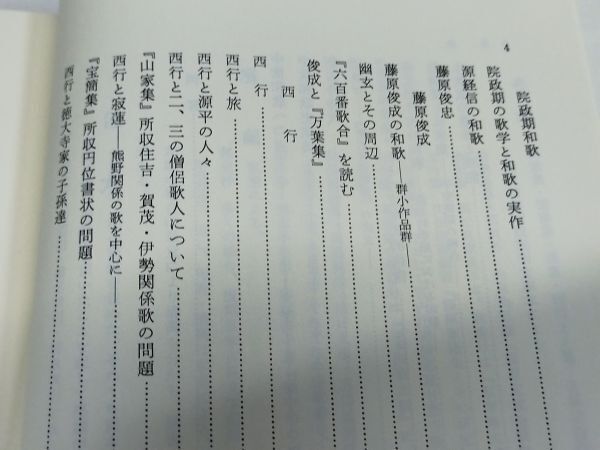 4
院政期和歌
院政期の歌学と和歌の実作……
源経信の和歌……
藤原俊忠……
藤原俊成
藤原俊成の和歌――群小作品群――……
幽玄とその周辺……
『六百番歌合』を読む……
俊成と『万葉集』……
西行
西行……
西行と旅……
西行と源平の人々……
西行と二、三の僧侶歌人について……
『山家集』所収住吉・賀茂・伊勢関係歌の問題……
西行と寂蓮――熊野関係の歌を中心に――……
『宝簡集』所収円位書状の問題……
西行と徳大寺家の子孫達……